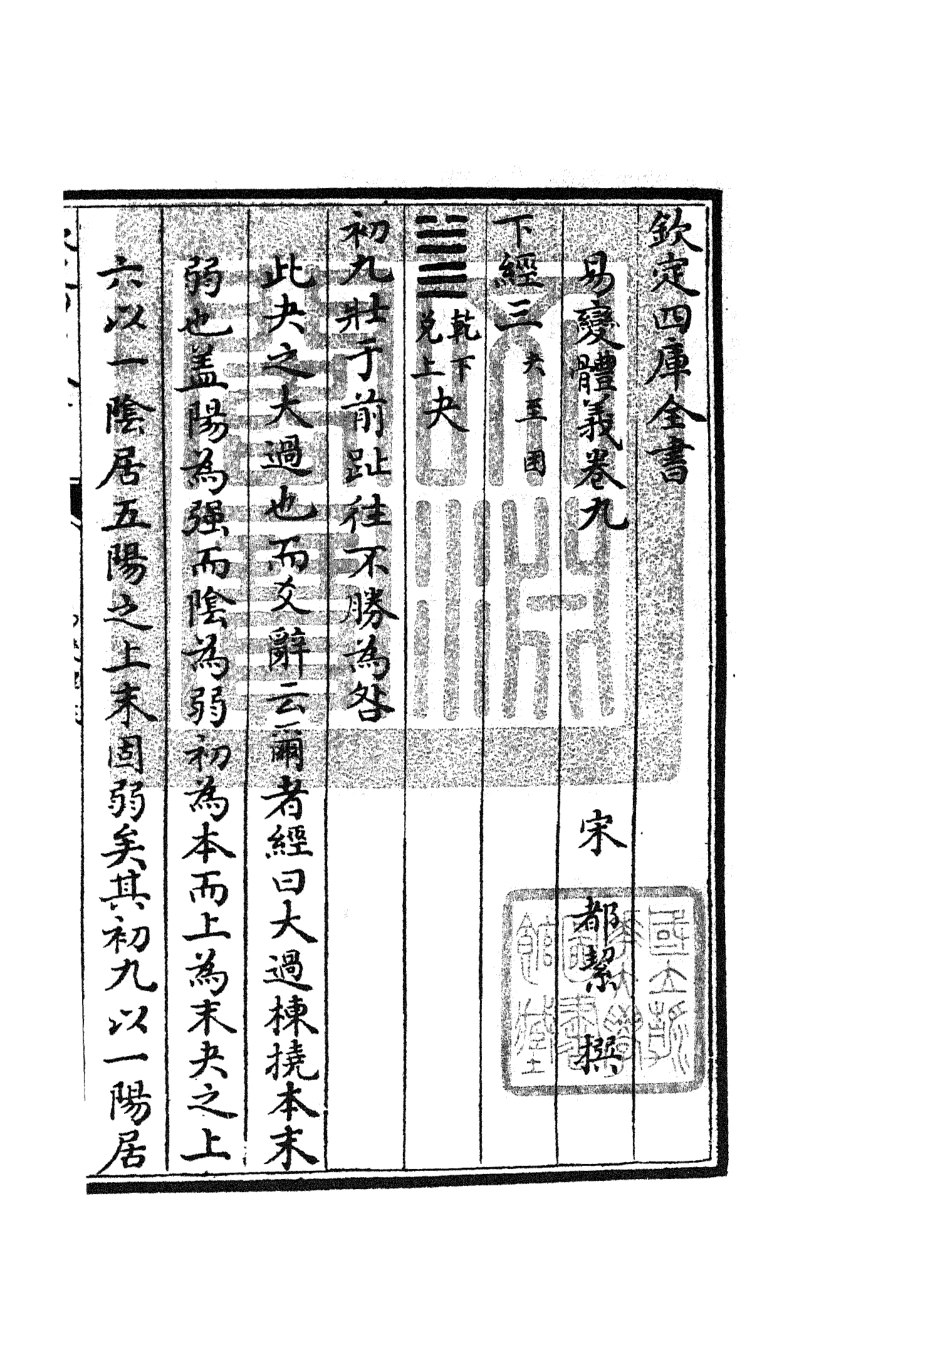 欽定四庫全書
易變體義卷九
宋 都絜 撰
下經三 夬至困
䷪ 乾下兌上 夬
初九壯于前趾往不勝為咎
此夬之大過也而爻辭云爾者經曰大過棟撓本末
弱也盖陽為强而陰為弱初為本而上為末夬之上
六以一陰居五陽之上末固弱矣其初九以一陽居